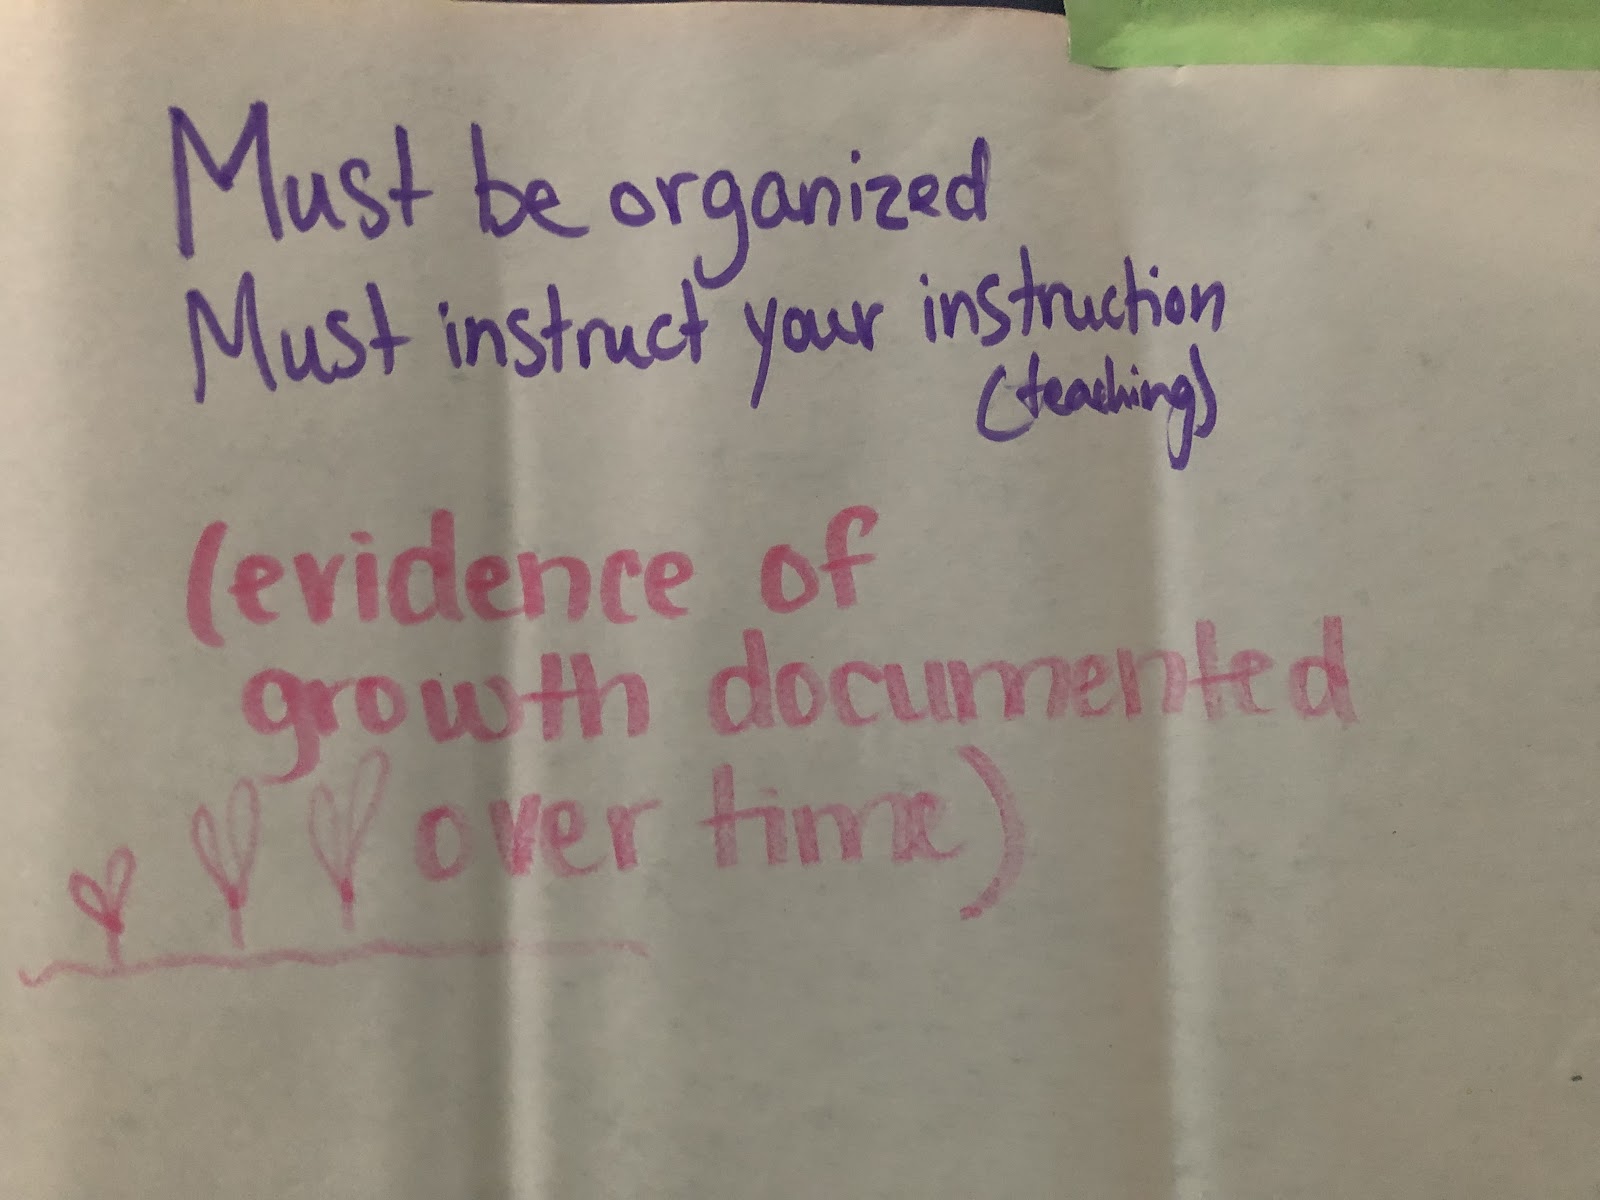 Must be organized
Must instruct your instruction
(teaching)
(evidence of
growth documented
over time)